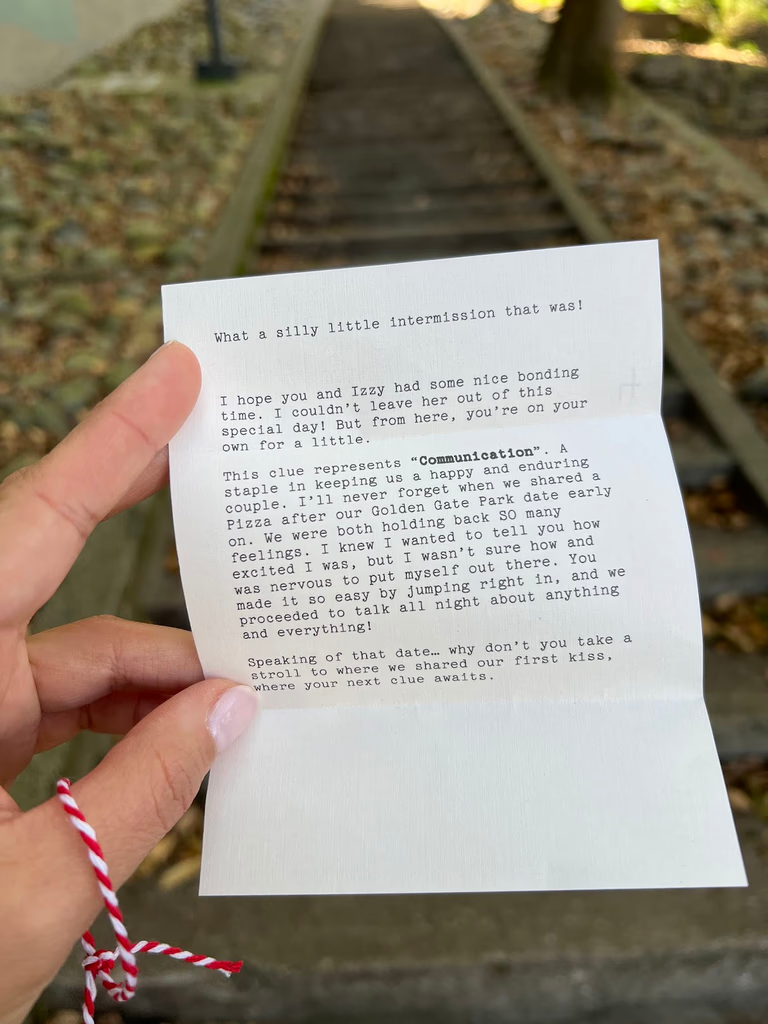 What a silly little intermission that was!
I hope you and Izzy had some nice bonding
time. I couldn't leave her out of this
special day! But from here, you're on your
own for a little.
This clue represents “Communication”. A
staple in keeping us a happy and enduring
couple. I'll never forget when we shared a
Pizza after our Golden Gate Park date early
on. We were both holding back SO many
feelings. I knew I wanted to tell you how
excited I was, but I wasn't sure how and
was nervous to put myself out there. You
made it so easy by jumping right in, and we
proceeded to talk all night about anything
and everything!
Speaking of that date… why don't you take a
stroll to where we shared our first kiss,
where your next clue awaits.